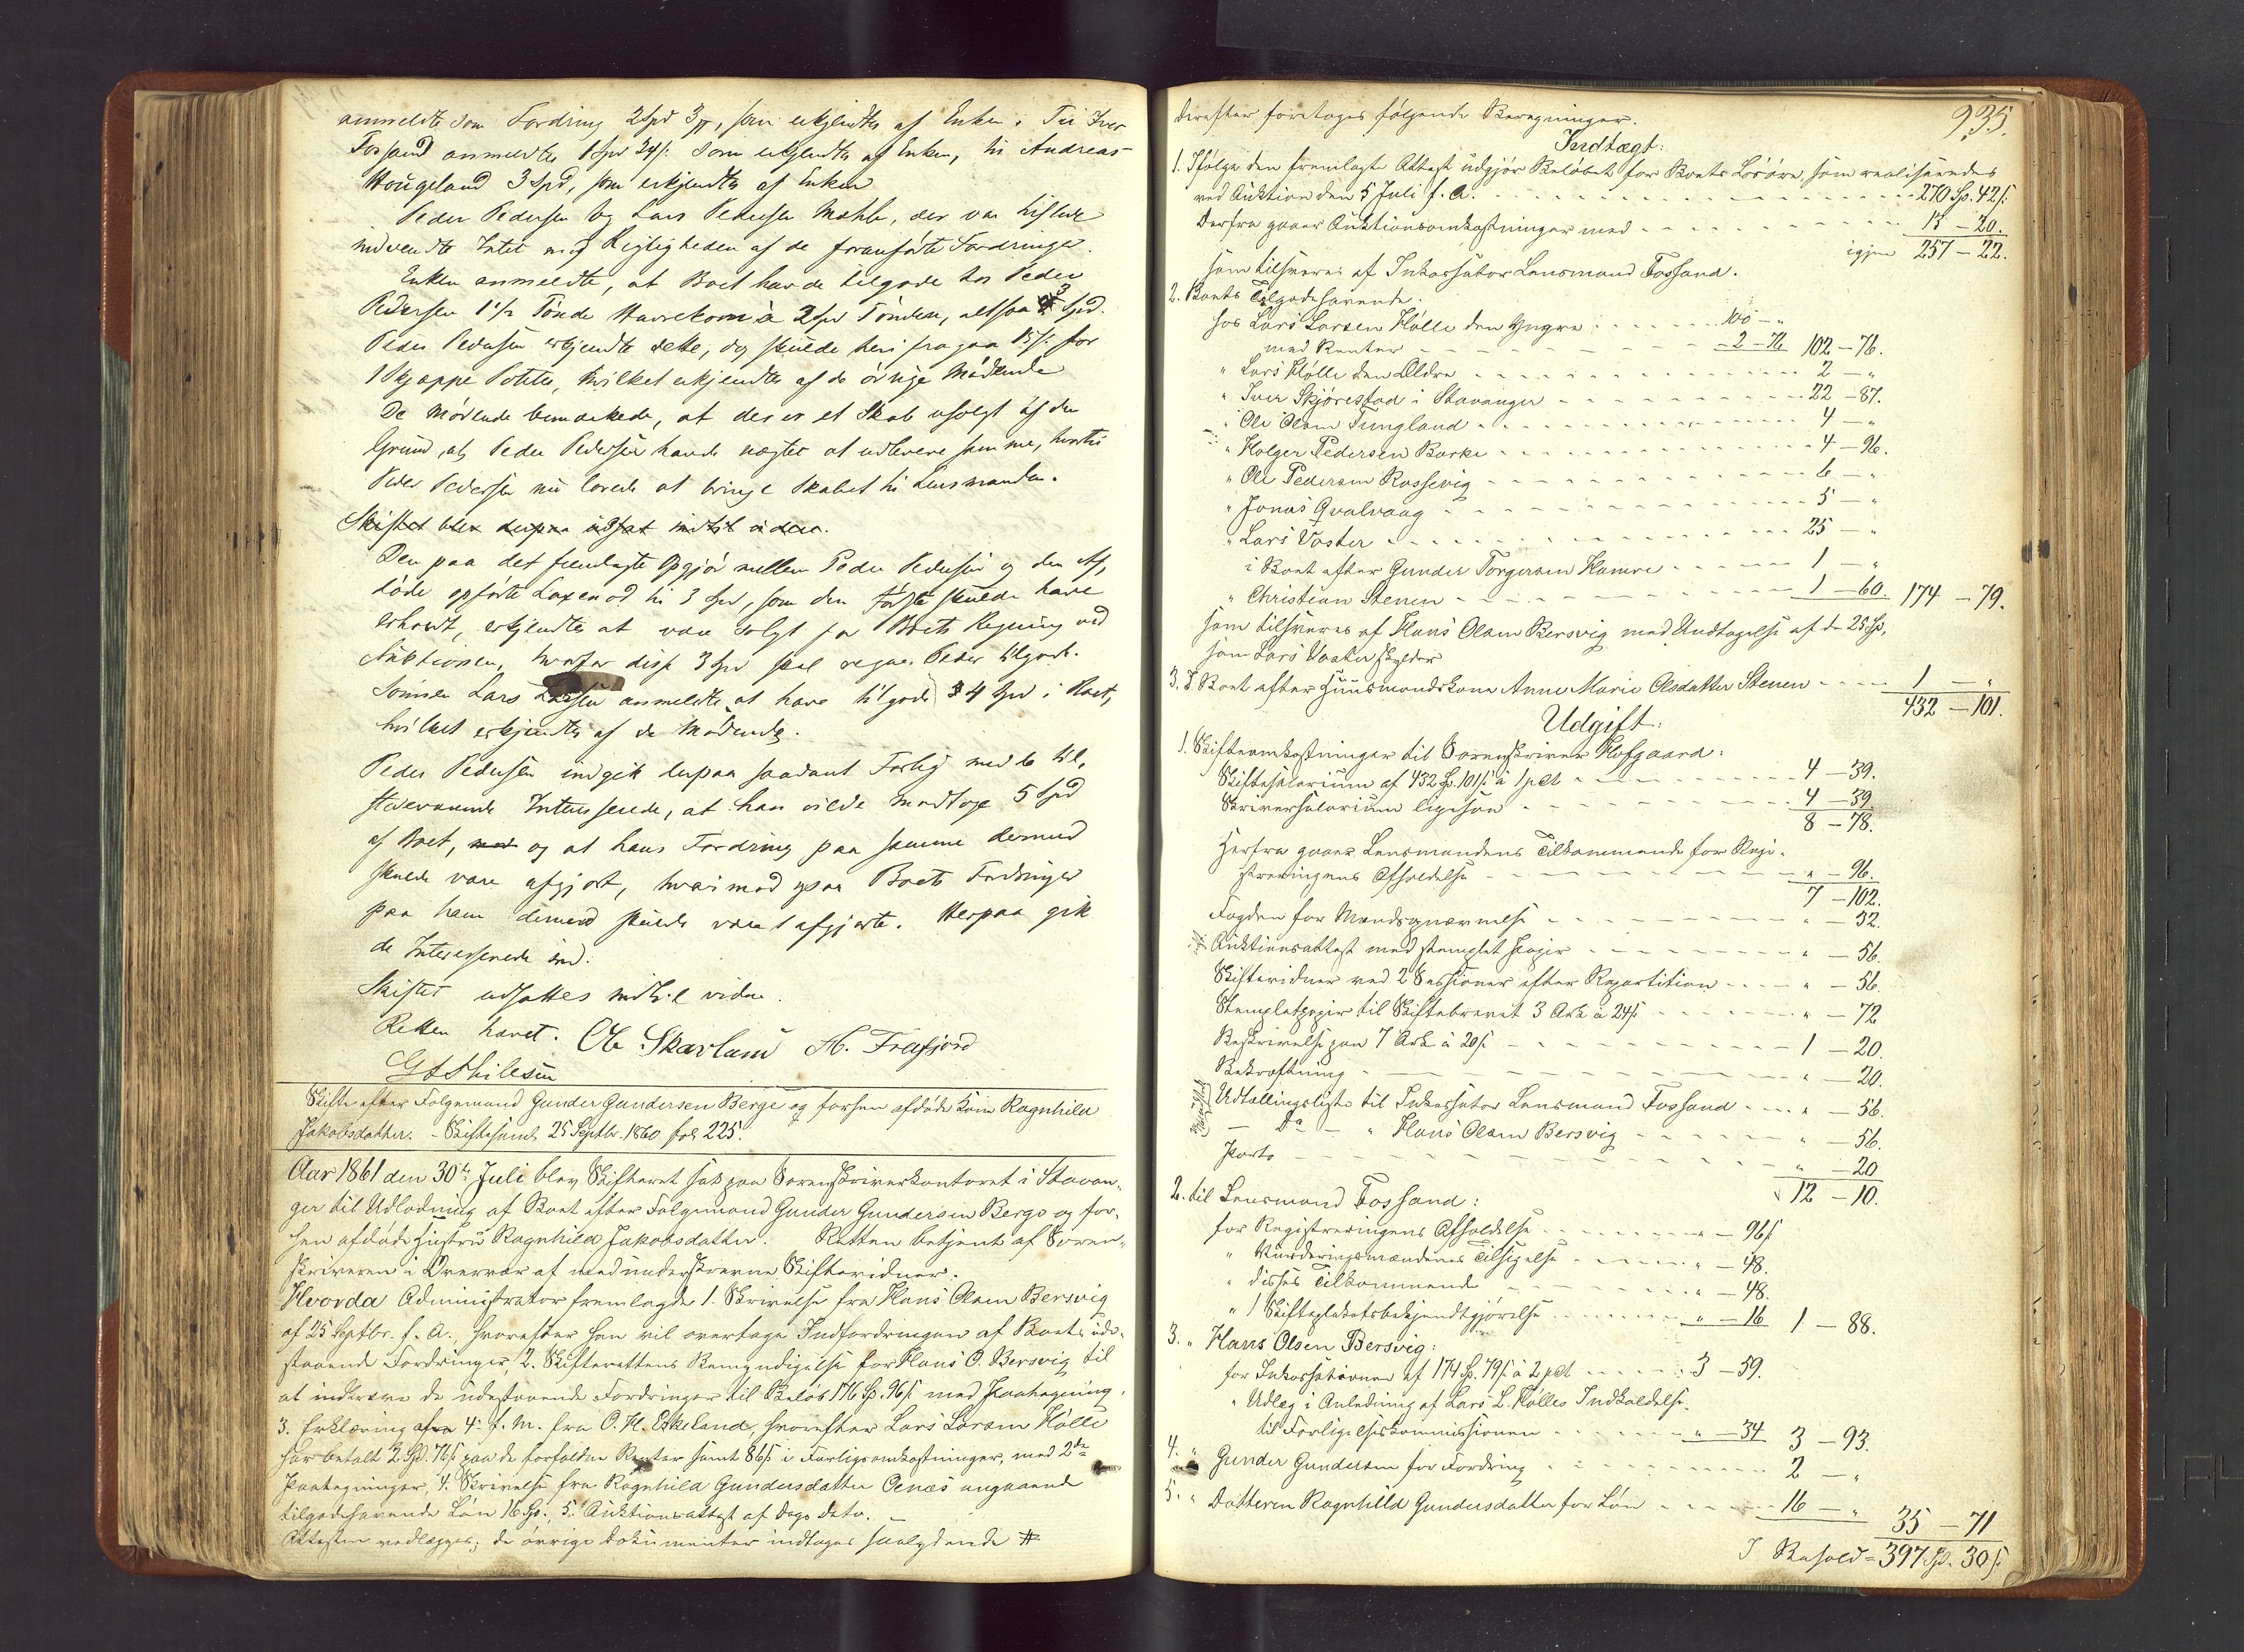 anmeldte som Fordring 2 Spd 3 , som erkjendtes af Enken. Til Iver
Fossand anmeldtes 1 Spd 24 s: som erkjendtes af Enken, til Andreas
Hougeland 3 Spd, som erkjendtes af Enken
Peder Pedersen og Lars Pedersen Mæhle, der var tilstede
indvendte Intet mod Rigtigheden af de foranførte Fordringer.
Enken anmeldte, at Boet havde tilgode hos Peder
Pedersen 1 1/2 Tønde Havrekorn à 2 Spd Tønden, altsaa 3 Spd.
Peder Pedersen erkjendte dette, dog skulde heri fragaa 15 s: for
1 Skjæppe Poteter, hvilket erkjendtes af de øvrige Mødende
De Mødende bemærkede, at der er et Skab usolgt af den
Grund, at Peder Pedersen havde nægtet at udlevere samme, hvortil
Peder Pedersen nu lovede at bringe Skabet til Lensmanden.
Skiftet blev derpaa udsat indtil videre.
Den paa det fremlagte Opgjør mellem Peder Pedersen og den Af,
døde opførte Laxenod til 3 Spd, som den første skulde have
erholdt, erkjendtes at være solgt for Boets Regning ved
Auktionen, hvorfor disse 3 Spd skal Peder tilgode.
Sønnen Lars Larsen anmeldte at have tilgode 4 Spd i Boet,
hvilket erkjendtes af de Mødende.
Peder Pedersen indgik derpaa saadant Forlig med de til,
stedeværende Interesserede, at han vilde modtage 5 Spd
af Boet, med og at hans Fordring paa samme dermed
skulde være afgjort, hvorimod ogsaa Boets Fordringer
paa ham dermed skulde være afgjorte. Herpaa gik
de Interesserede ind.
Skiftet udsattes indtil videre.
Retten hævet. Ole Skavland H. Frafjord
Skifte efter Folgemand Gunder Gundersen Berge og forhen afdøde Kone Ragnhild
Jakobsdatter. - Skiftesaml. 25 Septbr. 1860 fol 225.
Aar 1861 den 30te Juli blev Skifteret sat paa Sorenskriverkontoret i Stavan,
ger til Udlodning af Boet efter Folgemand Gunder Gundersen Berge og for,
hen afdøde Hustru Ragnhild Jakobsdatter. Retten betjent af Soren-
skriveren i Overvær af medunderskrevne Skiftevidner.
Hvorda Administrator fremlagde 1. Skrivelse fra Hans Olsen Bersvig
af 25 Septbr. f. A., hvorefter han vil overtage Indfordringen af Boets ude-
staaende Fordringer, 2. Skifterettens Bemyndigelse for Hans O. Bersvig til
at inddrive de udestaaende Fordringer til Beløb 176 Sp. 96 s med Paategning,
3. Erklæring af 4. f. M. fra O. H. Eskeland, hvorefter Lars Larsen Hølle
har betalt 2 Spd. 76 s paa de forfaldne Renter samt 86 s i Forligsomkostninger, med 2de
Paategninger, 4. Skrivelse fra Ragnhild Gundersdatter Oenæs angaaende
tilgodehavende Løn 16 Sp., 5. Auktionsattest af Dags Dato. -
Attesten vedlægges; de øvrige Dokumenter indtages saalydende #
935.
Derefter foretoges følgende Beregninger.
Indtægt:
1. Ifølge den fremlagte Attest udgjør Beløbet for Boets Løsøre, som realiseredes
ved Auktion den 5 Juli f. A. 270 Sp. 42 s:
Derfra gaaer Auktionsomkostninger med 13 - 20.
igjen 257 - 22.
som tilsvares af Inkassator Lensmand Fossand.
2. Boets Tilgodehavende:
hos Lars Larsen Hølle den Yngre 100 - "
med Renter 2 - 76 102 - 76.
" Lars Hølle den Ældre 2 - "
" Iver Skjørestad i Stavanger 22 - 87.
" Ole Olsen Tungland 4 - "
" Holger Pedersen Barke 4 - 96.
" Ole Pedersen Rossevig 6 - "
" Jonas Qvalvaag 5 - "
" Lars Vaster 25 - "
i Boet efter Gunder Torgersen Hamre 1 - "
" Christian Stenen 1 - 60. 174 - 79.
som tilsvares af Hans Olsen Bersvig med Undtagelse af de 25 Sp,
som Lars Vaster skylder
3. I Boet efter Huusmandskone Anne Marie Olsdatter Stenen 1 - "
432 - 101.
Udgift:
1. Skifteomkostninger til Sorenskriver Hofgaard:
Skiftesalarium af 432 Sp. 101 s à 1 pct 4 - 39.
Skriversalarium ligesaa 4 - 39.
8 - 78.
Herfra gaaer Lensmandens Tilkommende for Regi-
streringens Afholdelse " - 96.
7 - 102.
Fogden for Mandsopnævnelse " - 32.
Auktionsattest med stemplet Papir " - 56.
Skiftevidner ved 2 Sessioner efter Repartition " - 56.
Stempletpapir til Skiftebrevet 3 Ark à 24 s " - 72
Beskrivelse paa 7 Ark à 20 s 1 - 20.
Bekræftning " - 20.
Udtællingsliste til Inkassator Lensmand Fossand " - 56.
- Do - " Hans Olsen Bersvig " - 56.
Porto " - 20
12 - 10.
2. til Lensmand Fossand:
for Registreringens Afholdelse " - 96 s
" Vurderingsmændenes Tilsigelse " - 48.
" disses Tilkommende " - 48.
" 1 Skifteplakatsbekjendtgjørelse " - 16 1 - 88.
3. " Hans Olsen Bersvig:
for Inkassationen af 174 Sp. 79 s à 2 pct 3 - 59.
" Udlæg i Anledning af Lars L. Hølles Indkaldelse
til Forligelseskommissionen " - 34 3 - 93.
4. " Gunder Gundersen for Fordring 2 - "
5. " Datteren Ragnhild Gundersdatter for Løn 16 - "
35 - 71
I Behold = 397 Sp. 30 s: